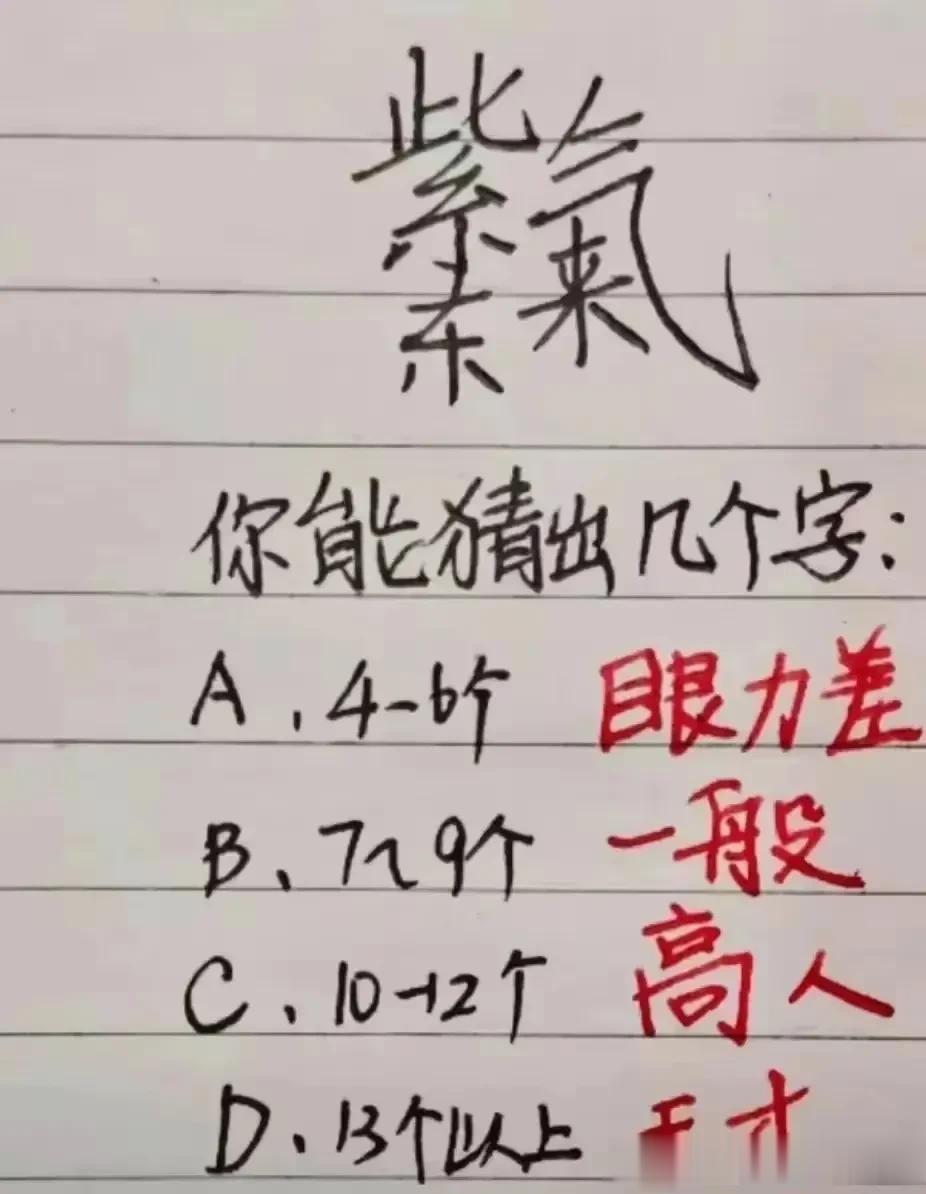 紫气东来
你能猜出几个字:
A、4-6个 眼力差
B、7~9个 一般
C、10-12个 高人
D、13个以上